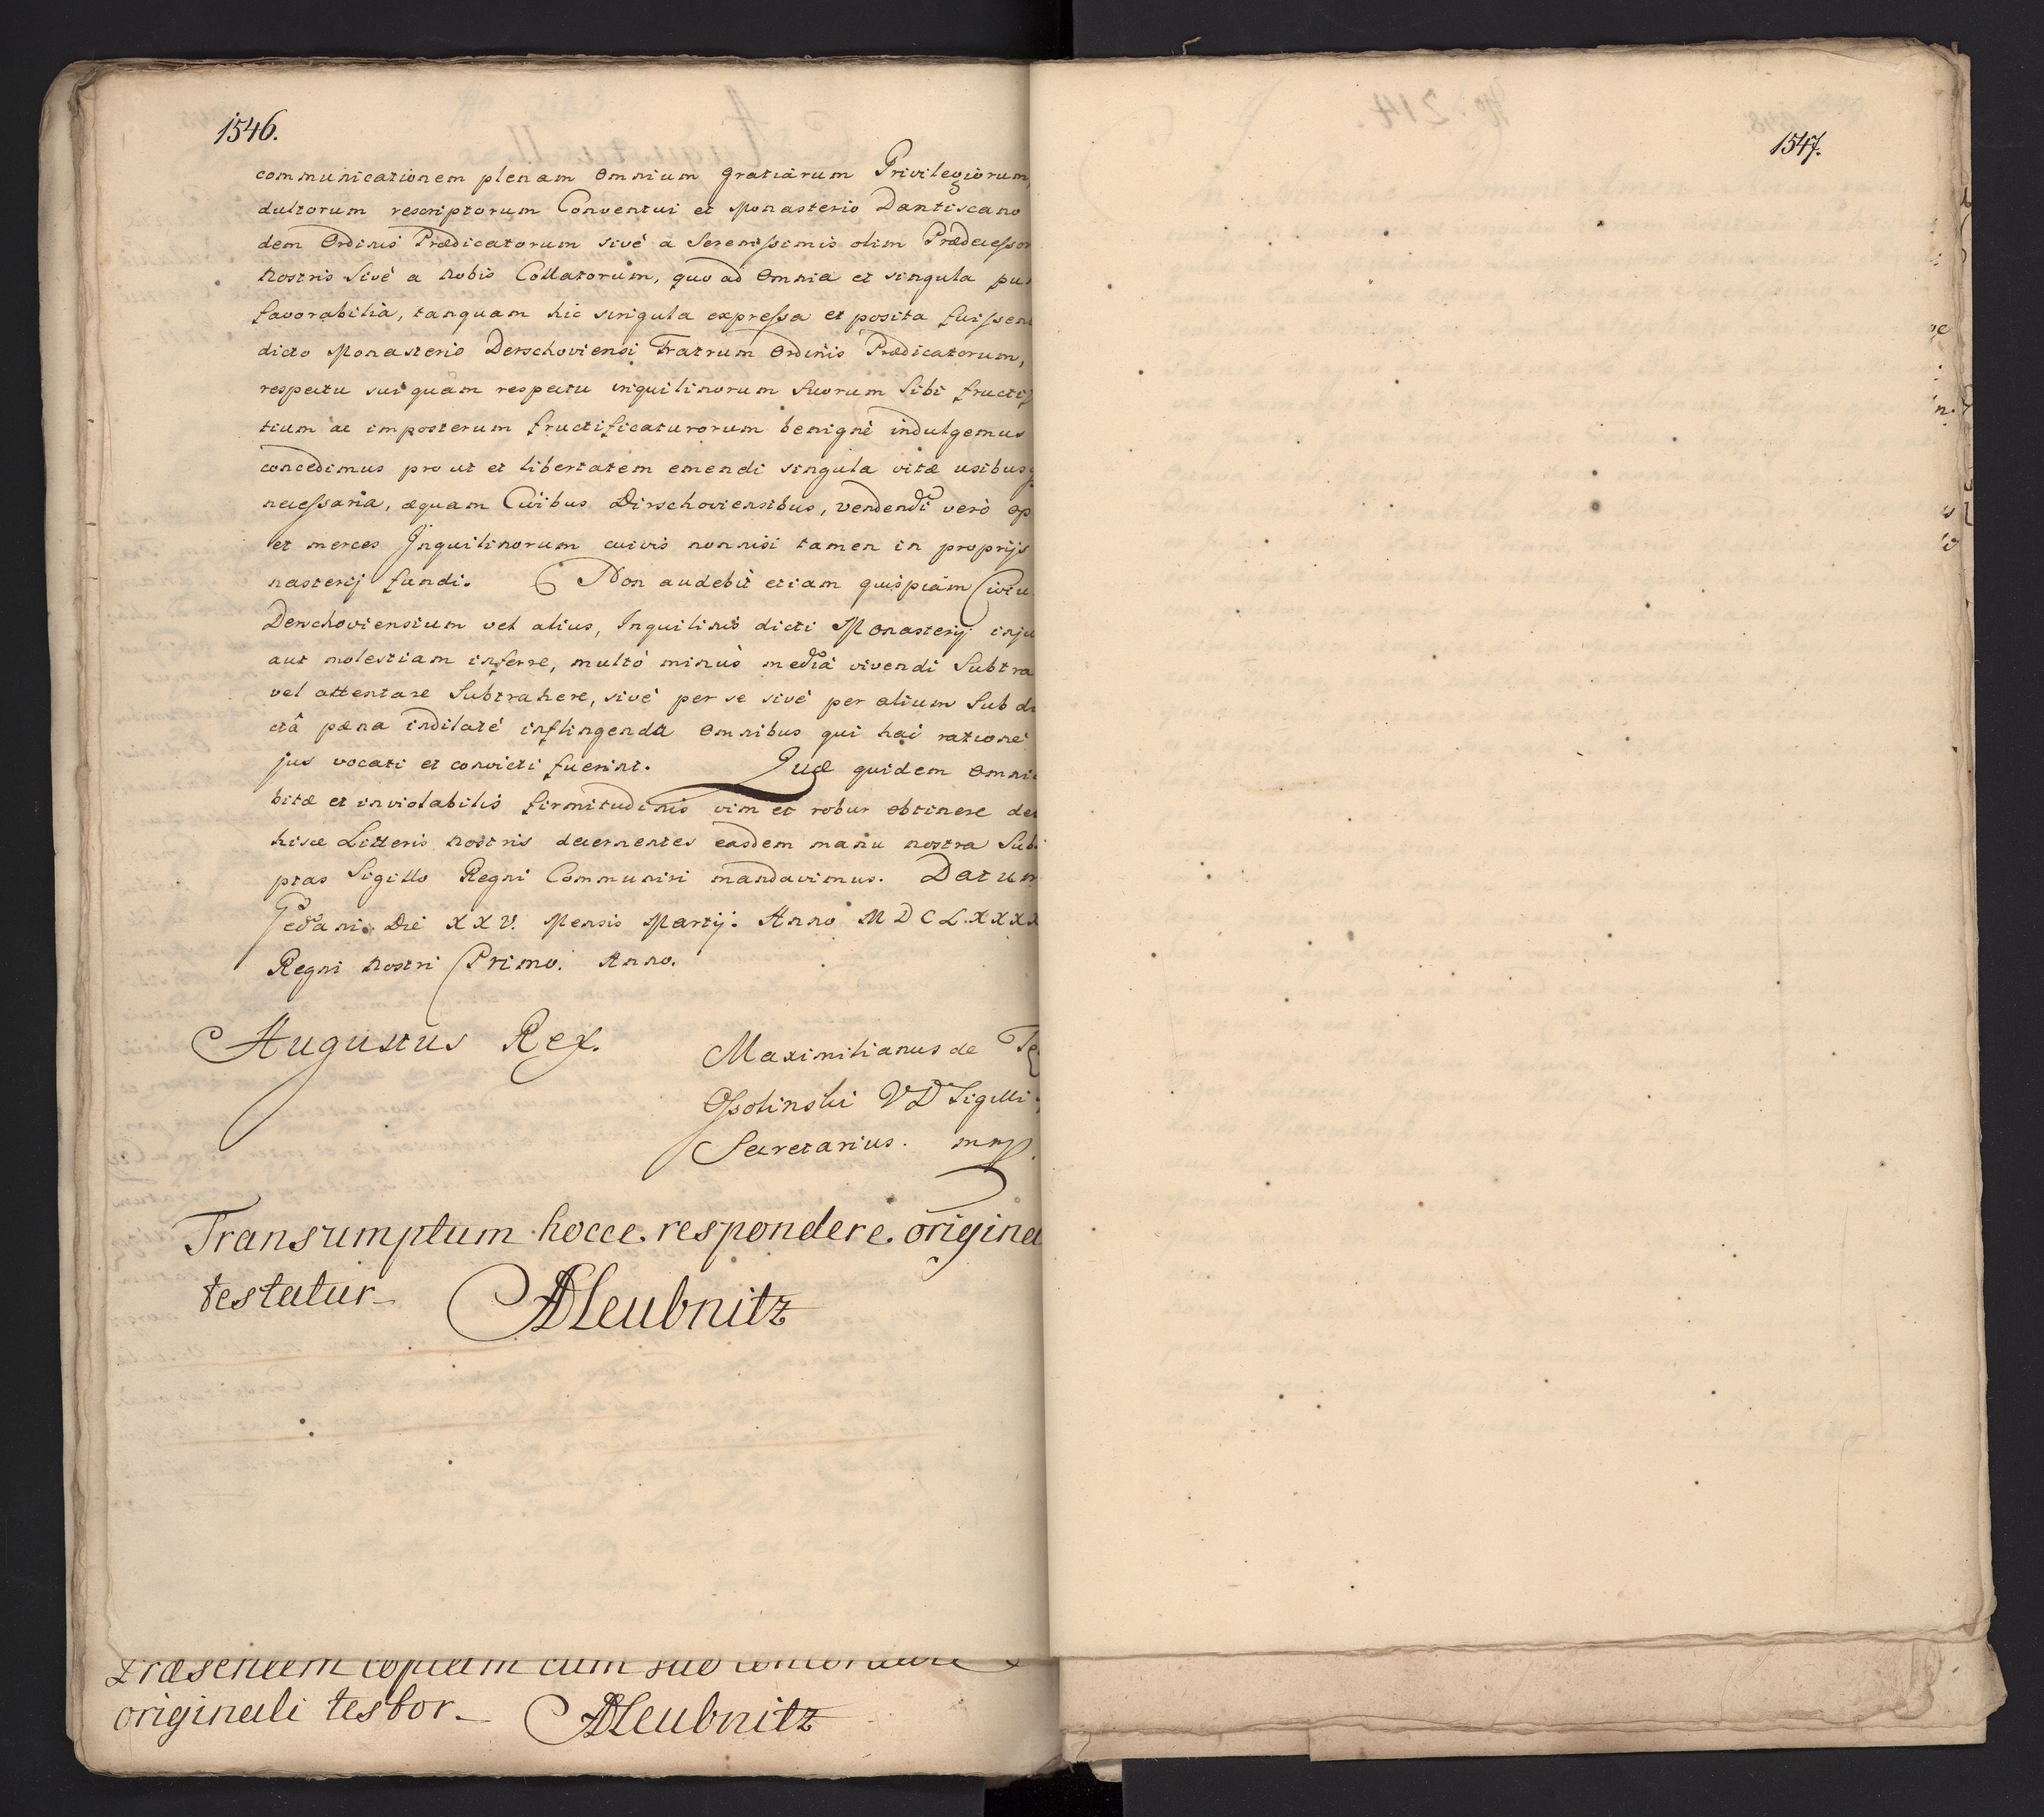 1546.
communicationem plenam omnium gratiarum Privilegiorum,
dultorum rescriptorum Conventui et Monasterio Dantiscano
dem Ordinis Prædicatorum sivè a Serenissimis olim Prædecessor
Nostris Sivè a Nobis Collatorum, quo ad omnia et singula pu
favorabilia, tanquam hic singula expressa et posita fuissent
dicto Monasterio Derschoviensi Fratrum Ordinis Prædicatorum,
respectu sui quàm respectu inquilinorum Suorum Sibi fructi
tium ac imposterum fructificaturorum benignè indulgemus
concedimus pro ut et libertatem emendi singula vitæ usibus
necessaria, æquam Civibus Dirschoviensibus, vendendi verò op
et merces Inquilinorum cuivis nonnisi tamen in proprijs
nasterij fundi. Non audebit etiam quispiam Civiu
Derschoviensium vel alius, Inquilinis dicti Monasterij inju
aut molestiam inferre, multò minùs media vivendi Subtra
vel attentare Subtrahere, sivè per se sivè per alium Sub di
ctâ pæna indilatè inflingenda omnibus qui hac ratione
jus vocati et convicti fuerint. Quæ quidem omnia
bitæ et inviolabilis firmitudinis vim et robur obtinere de
hisce Litteris nostris decernentes easdem manu nostra Sub
ptas Sigillo Regni Communiri mandavimus. Datum
Gedani Die XXV. Mensis Martij. Anno MDCLXXXX
Regni Nostri Primo. Anno.
Augustus Rex.
Maximilianus de Te
Ossolinski VD Sigilli
Secretarius. mmp.
Transumptum hocce respondere origina
testatur
ADLeubnitz
Præsentem copiam cum suo concordare
originali testor
ADLeubnitz
1547.
214.